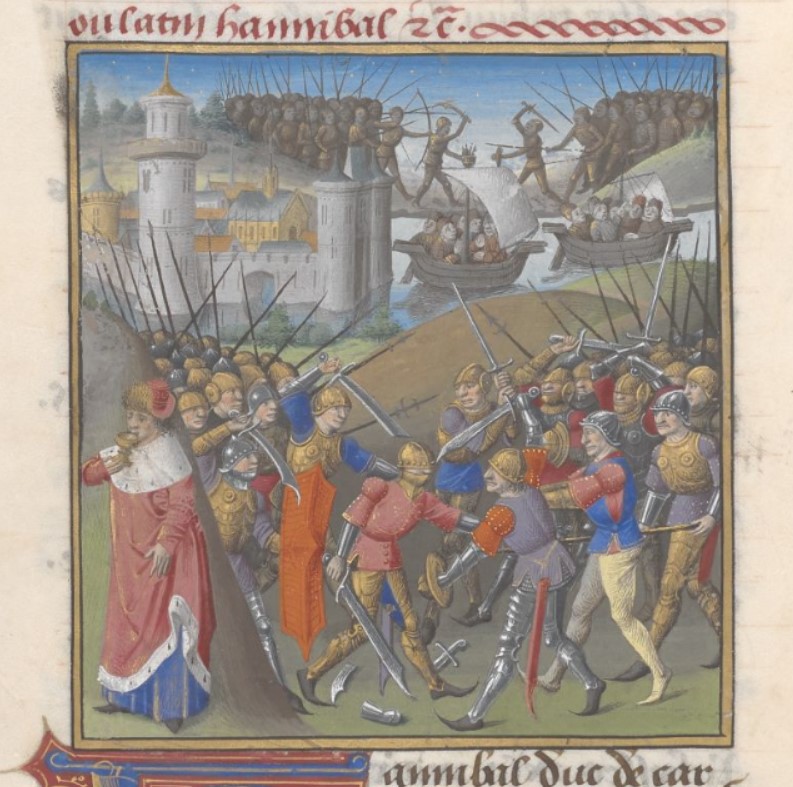 oulatin hannibal ⁊c̃.
annibal duc de car